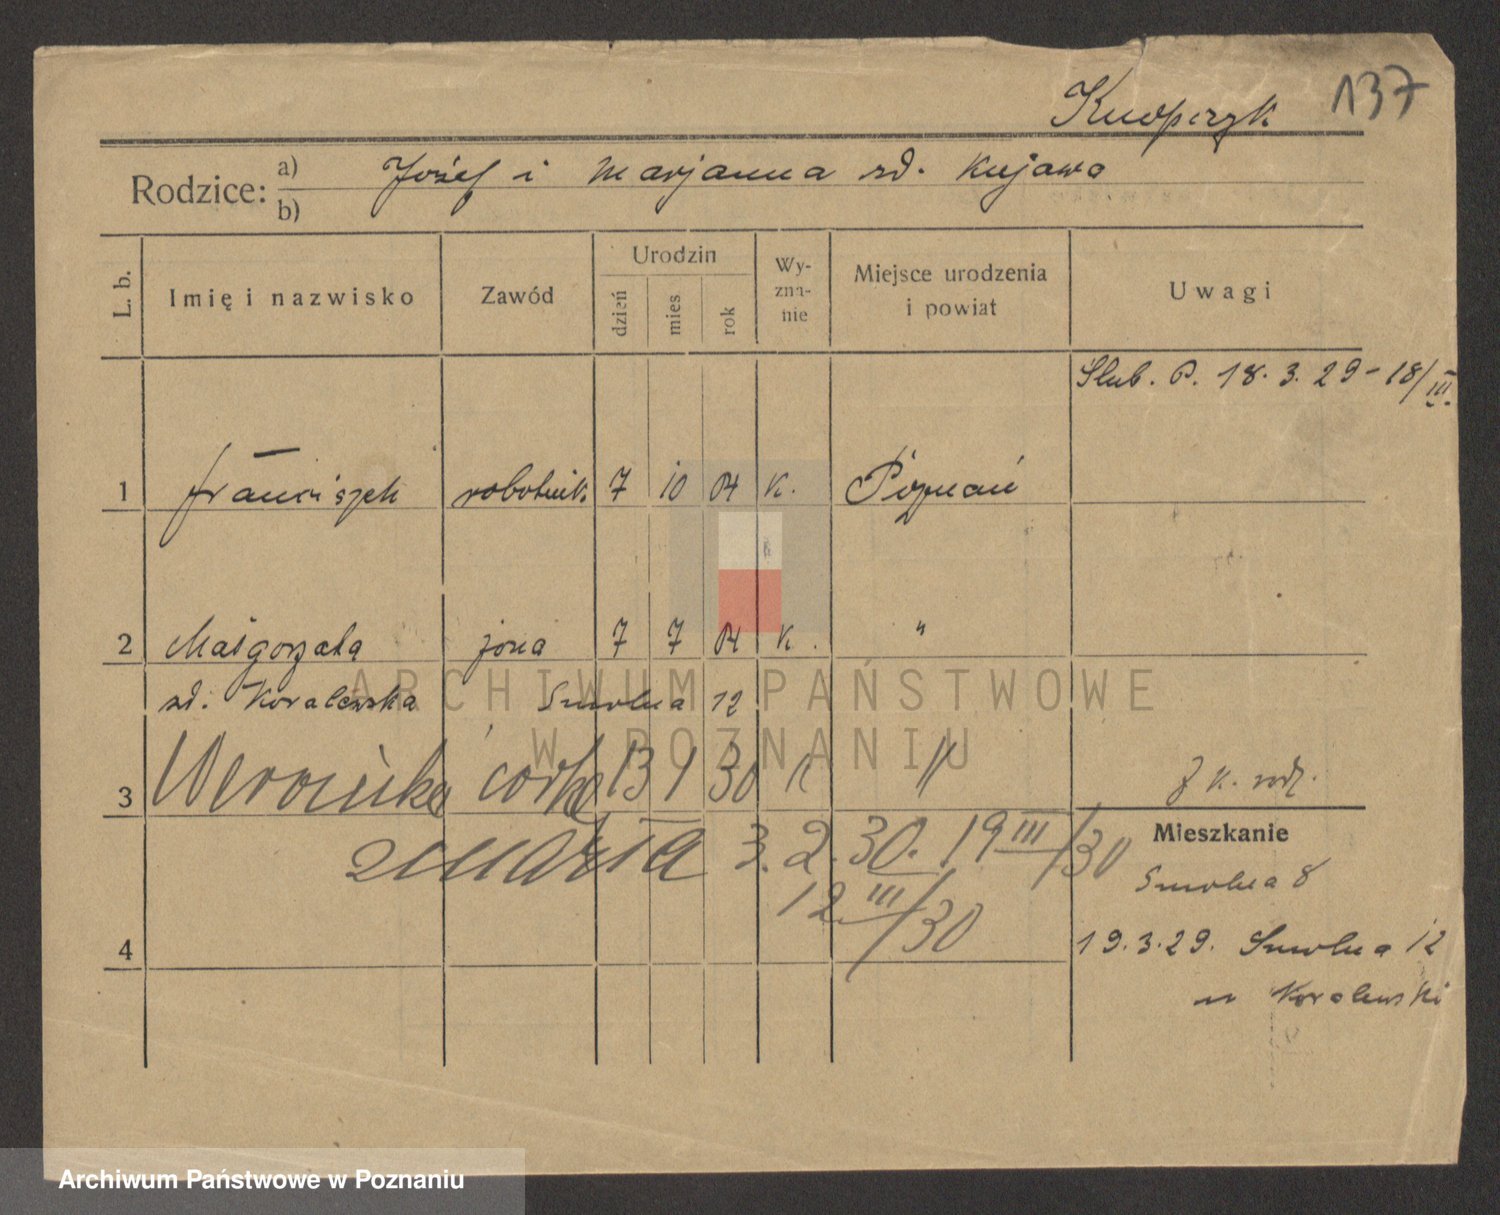 137
Rodzice:
a) Józef i Marjanna zd. Kujawa
b)
L. b.
Imię i nazwisko
Zawód
Urodzin
dzień
mies
rok
Wy-
zna-
nie
Miejsce urodzenia
i powiat
Uwagi
Ślub. P. 18.3.29 - 18/III.
1 Franciszek robotnik 7 10 04 k. Poznań
2 Małgorzata żona 7 7 04 k. "
zd. Koralewska Smolna 12
3 Weronika córka 13 1 30 k "
zmarła 3.2.30. 19 III/30
12 III/30
4
Mieszkanie
Smolna 8
19.3.29. Smolna 12
u Koralewski
ARCHIWUM PAŃSTWOWE
W POZNANIU
Archiwum Państwowe w Poznaniu